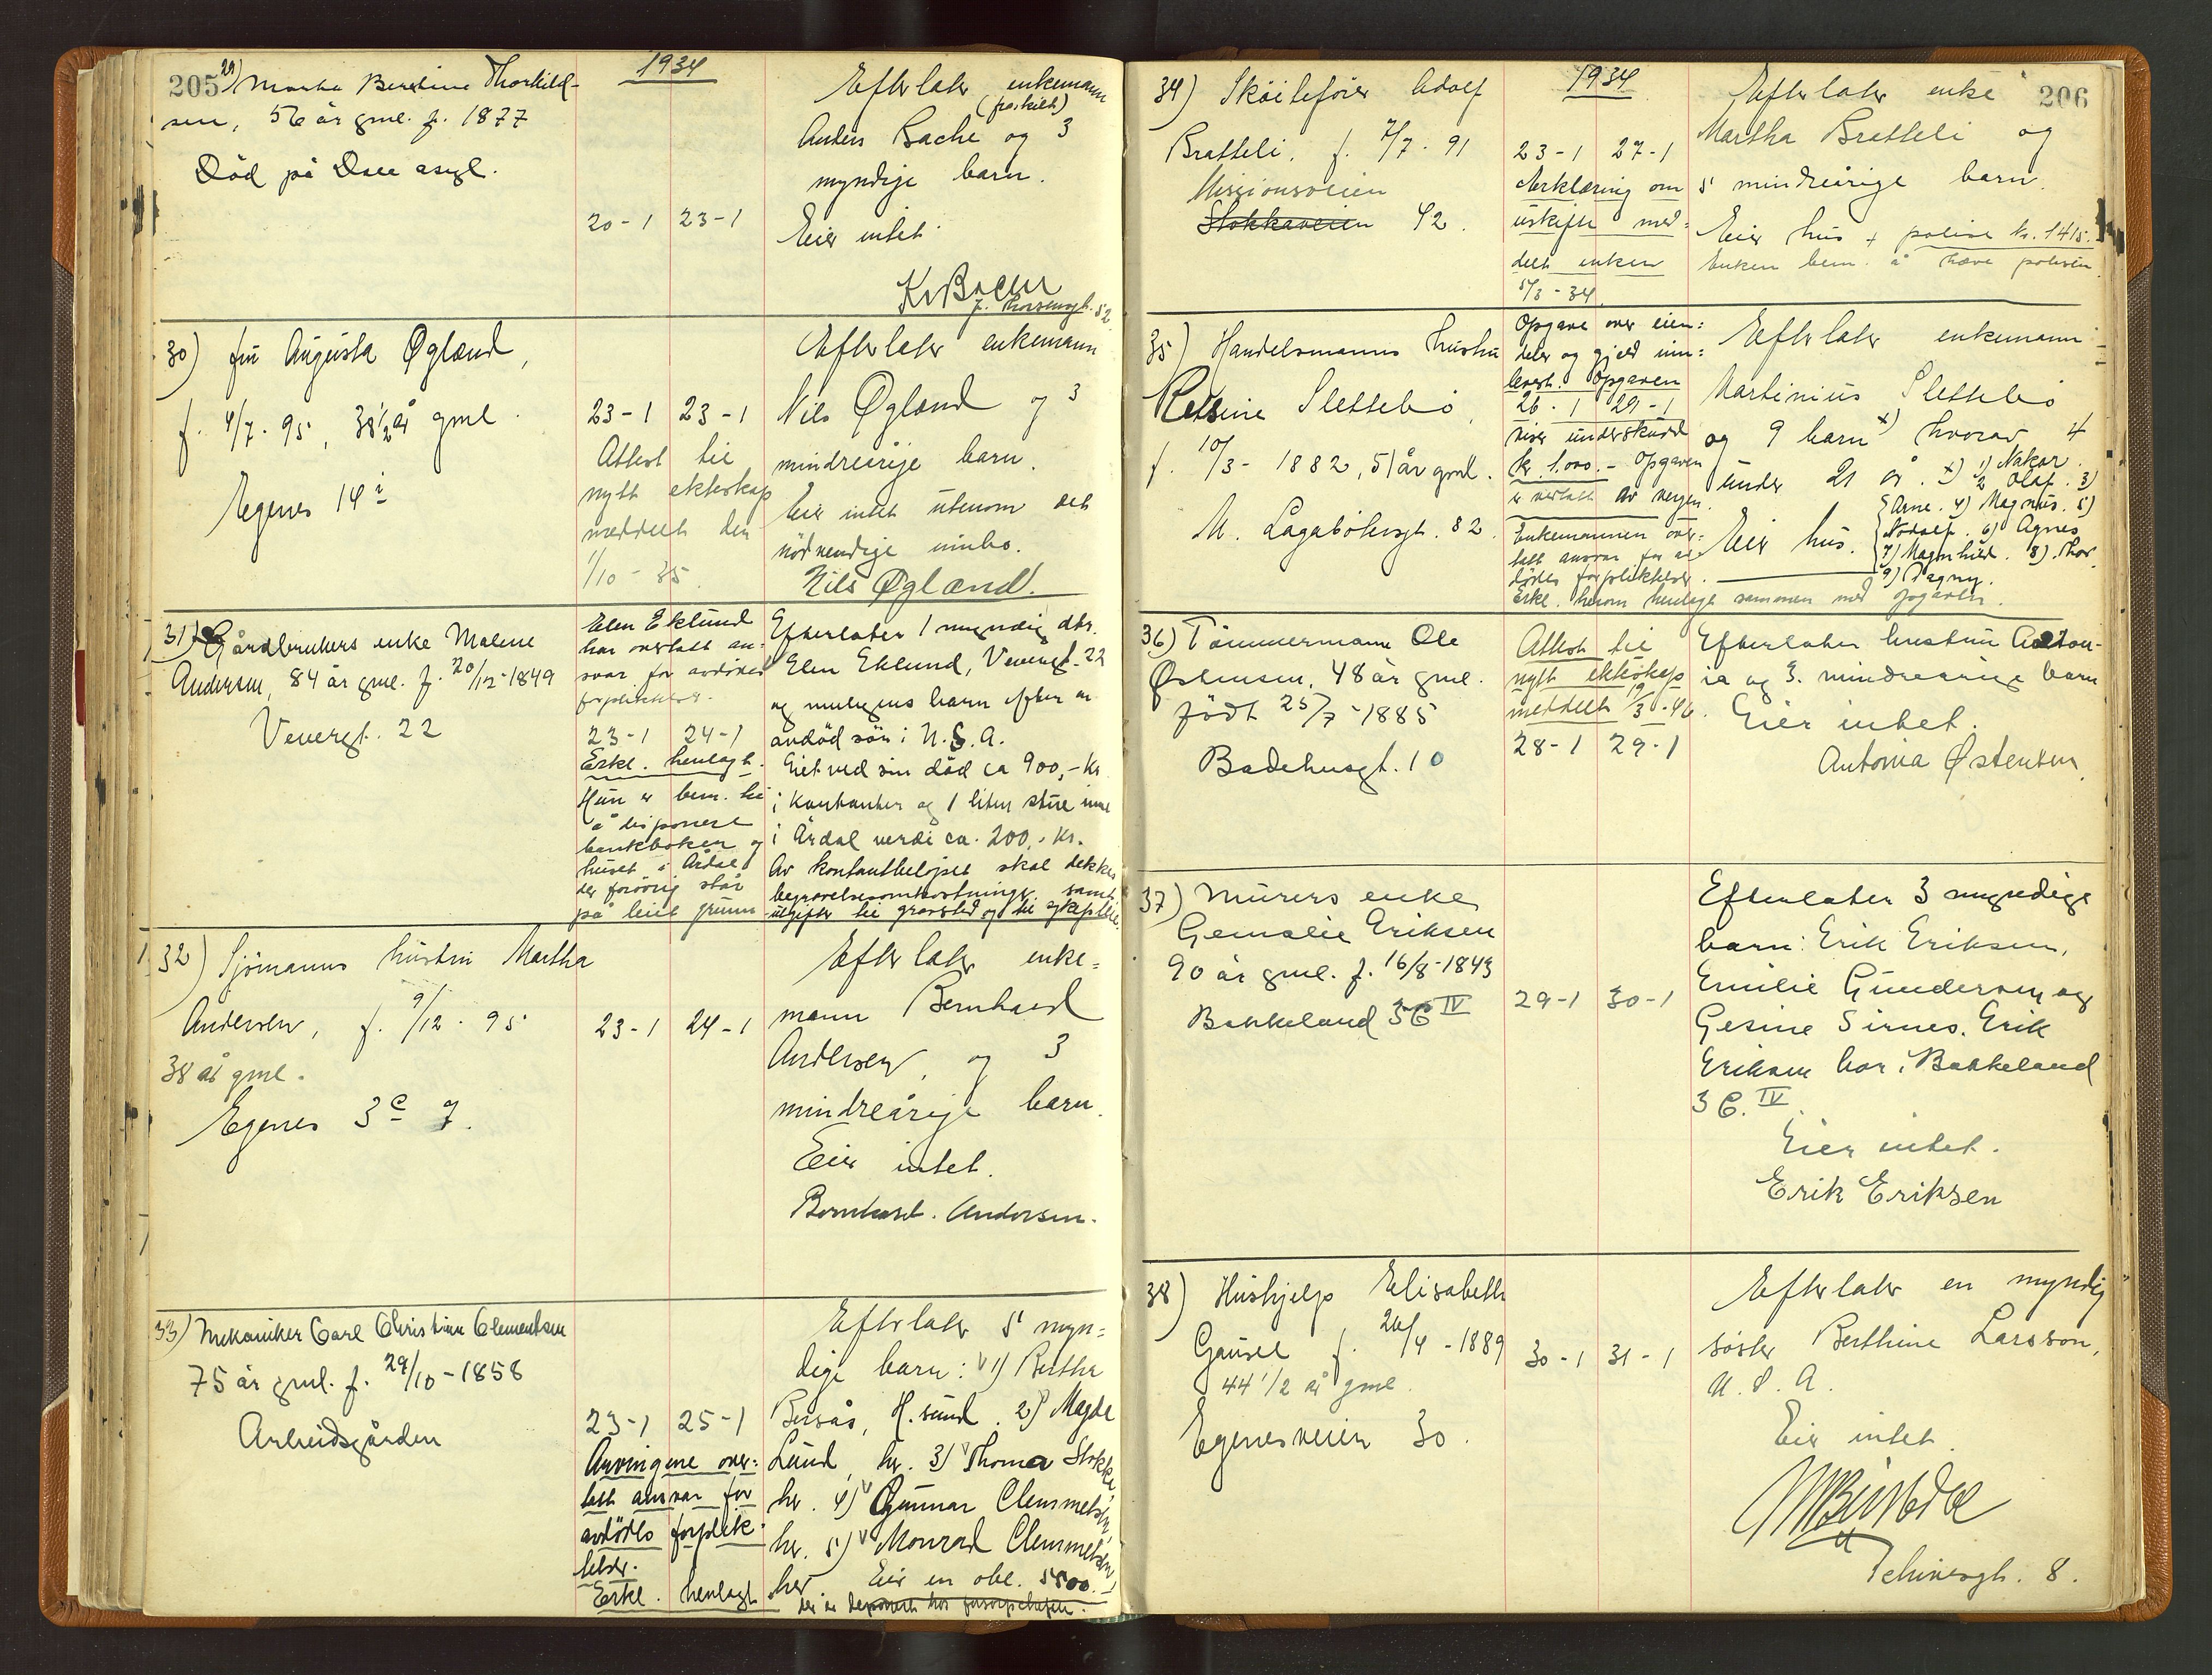 205
1934
29) Martha Bertine Thorkild-
sen, 56 år gml. f. 1877
Død på Dale asyl.
20-1 23-1
Efterlater enkemann
(fraskilt)
Anders Bache og 3
myndige barn.
Eier intet.
30) fru Augusta Øglænd,
f. 4/7. 95, 38 1/2 år gml.
Egenes 14 i
23-1 23-1
Attest til
nytt ekteskap
meddelt den
1/10 - 35.
Efterlater enkemann
Nils Øglænd og 3
mindreårige barn.
Eier intet utenom det
nødvendige innbo.
Nils Øglænd.
31) Gårdbrukers enke Malene
Andersen, 84 år gml. f. 20/12-1849
Vevergt. 22
Elen Eklund
har overtatt an-
svar for avdødes
forpliktelser.
23-1 24-1
Erkl. henlagt.
Hun er bem. til
å disponere
bankboken og
huset i Årdal
der forøvrig står
på leiet grunn
Efterlater 1 myndig dtr.
Elen Eklund, Vevergt. 22
og muligens barn efter en
avdød søn i U.S.A.
Eiet ved sin død ca 900,- kr
i kontanter og 1 liten stue inne
i Årdal verdi ca. 200,- kr.
Av kontantbeløpet skal dekkes
begravelsesomkostninger, samt
utgifter til gravsted og til
32) Sjømanns hustru Martha
Andersen, f. 9/12. 95
38 år gml.
Egenes 3 c 7.
23-1 24-1
Efterlater enke=
mann Bernhard
Andersen og 3
mindreårige barn.
Eier intet.
Bernhard. Andersen.
33) Mekaniker Carl Christian Clementsen
75 år gml. f. 29/10-1858
Arbeidsgården
23-1 25-1
Arvingene over=
tatt ansvar for
avdødes forplik-
telser.
Erkl. henlagt
Efterlater 5 myn=
dige barn: 1) Bertha
Bersås, H.sund. 2) Magda
Lund, her. 3) Thoma Stokka,
her. 4) Gunnar Clemmetsen,
her. 5) Monrad Clemmetsen,
her. Eier en obl. 5500.-
der er deponert hos forsorgschefen.
206
1934
34) Skøitefører Adolf
Bratteli, f. 7/7. 91
Misjonsveien
Stokkaveien 42.
23-1 27-1
Erklæring om
uskifte med=
delt enken
5/3 - 34.
Efterlater enke
Martha Bratteli og
5 mindreårige barn.
Eier hus + polise Nr. 1415.
Enken bem. å hæve polisen.
35) Handelsmanns hustru
Retsine Slettebø,
f. 10/3 - 1882, 51 år gml.
M. Lagabøtersgt. 82.
Opgave over eien=
deler og gjeld inn=
levert. Opgaven
26-1 29-1
viser underskudd
kr 1.000.- Opgaven
er vedtatt av vergen.
Enkemannen over=
tatt ansvar for av=
dødes forpliktelser.
Erkl. herom henlagt sammen med opgaven.
Efterlater enkemann
Martinius Slettebø
og 9 barn x) hvorav 4
under 21 år. x) 1) Nakor.
2 Olaf. 3)
Arne. 4) Magnus. 5)
Nodolf. 6) Agnes
7) Magnhild. 8) Thor
9) Dagny.
Eier hus.
36) Tømmermann Ole
Østensen, 48 år gml.
født 25/7-1885
Badehusgt. 10
Attest til
nytt ekteskap
meddelt 19/3 -46.
28-1 29-1
Efterlater hustru Anton-
ia og 3. mindreårige barn
Eier intet.
Antonia Østensen
37) Murers enke
Gemalie Eriksen
90 år gml. f. 16/8-1843
Bakkeland 36 IV
29-1 30-1
Efterlater 3 myndige
barn: Erik Eriksen,
Emilie Gundersen og
Gesine Sirnes. Erik
Eriksen bor i Bakkeland
36. IV.
Eier intet.
Erik Eriksen
38) Hushjelp Elisabeth
Gausel f. 26/4 - 1889
44 1/2 år gml.
Egenesveien 30.
30-1 31-1
Efterlater en myndig
søster Berthine Larsson,
U. S. A.
Eier intet.